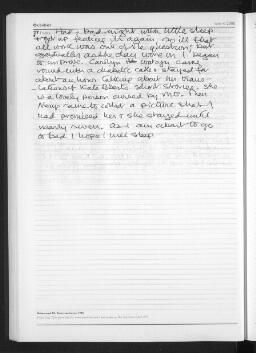 October
Had a bad night with little sleep
& got up feeling ill again. So ill that
all work was out of the question, but
gradually as the day wore on I began
to improve. Carolyn came
round with a diabetic cake & stayed for
about an hour talking about her trans-
lations of Kate Roberts short stories. She
is a lovely person cursed by M.S. Then
came to collect a picture that I
had promised her & she stayed until
nearly seven. As I am about to go
to bed I hope I will sleep